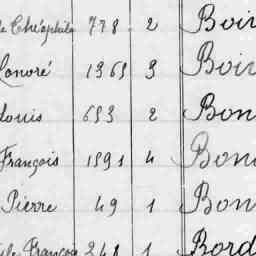 Théophile 778 2 Boir
Honoré 1369 3 Boir
Louis 693 2 Bon
François 1591 4 Bon
Pierre 49 1 Bon
François 248 1 Bord